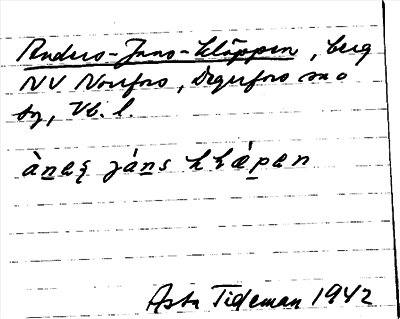 Anders-Jans-kläppen, berg
NV Norrfors, Degerfors sn o
by, Vb. l.
ànaʂ jáns khä̀pen
Asta Tideman 1942